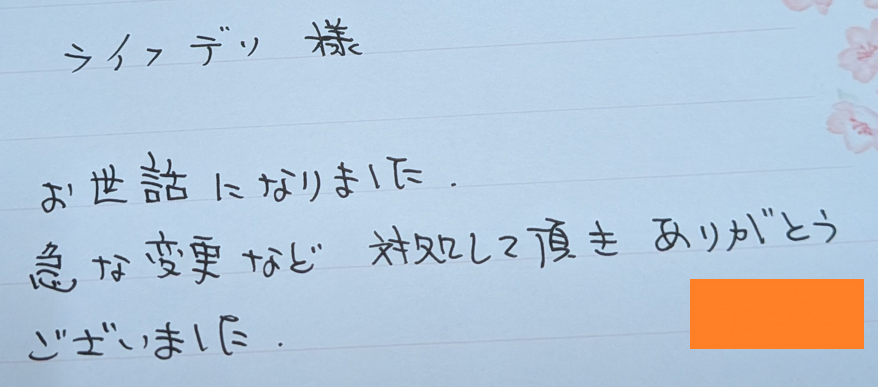 ライフデリ 様
お世話になりました.
急な変更など 対処して頂き ありがとう
ございました.